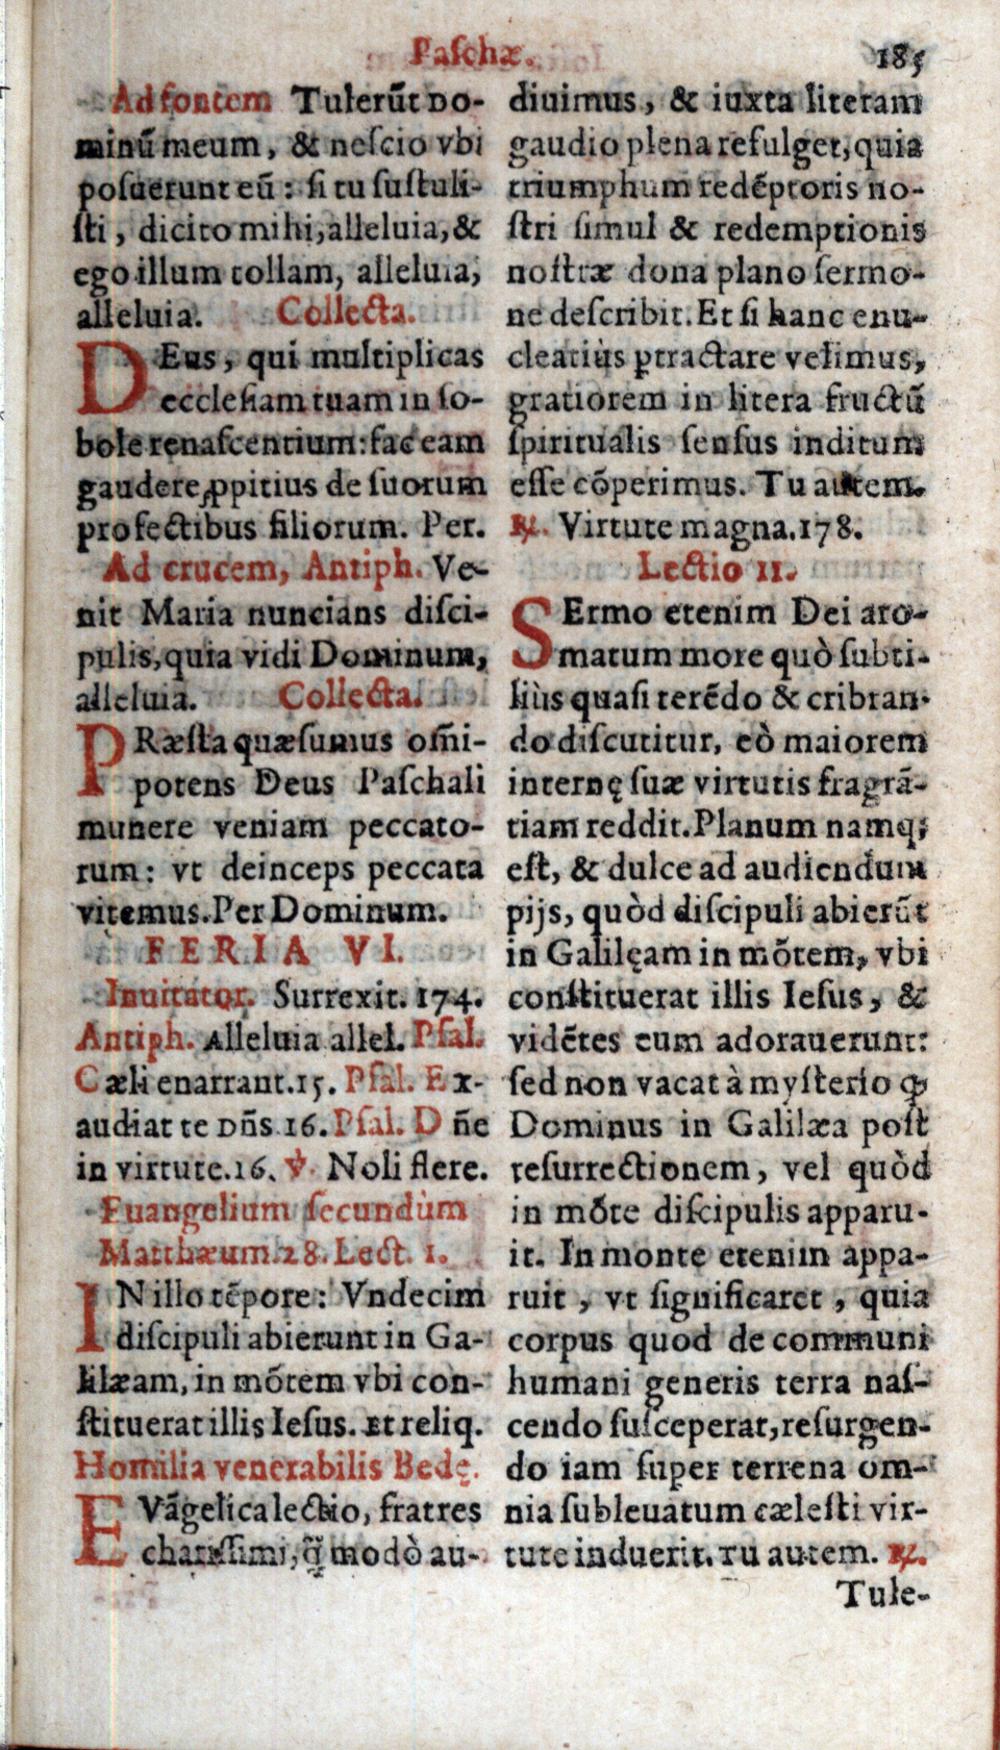 Paſchæ. 185
Ad fontem Tulerūt Do-
minū meum, & neſcio vbi
poſuerunt eū: ſi tu ſuſtuli-
ſti, dicito mihi, alleluia, &
ego illum tollam, alleluia,
alleluia. Collecta.
DEus, qui multiplicas
eccleſiam tuam in ſo-
bole renaſcentium: fac eam
gaudere ꝓpitius de ſuorum
profectibus filiorum. Per.
Ad crucem, Antiph. Ve-
nit Maria nuncians diſci-
pulis, quia vidi Dominum,
alleluia. Collecta.
PRæſta quæſumus om̄i-
potens Deus Paſchali
munere veniam peccato-
rum: vt deinceps peccata
vitemus. Per Dominum.
FERIA VI.
Inuitator. Surrexit. 174.
Antiph. Alleluia allel. Pſal.
Cæli enarrant. 15. Pſal. Ex-
audiat te Dn̄s 16. Pſal. D n̄e
in virtute. 16. ℣. Noli flere.
Euangelium ſecundùm
Matthæum. 28. Lect. 1.
IN illo tēpore: Vndecim
diſcipuli abierunt in Ga-
lilæam, in mōtem vbi con-
ſtituerat illis Ieſus. Et reliq.
Homilia venerabilis Bedę.
EVāgelica lectio, fratres
chariſſimi, q̃ modò au-
diuimus, & iuxta literam
gaudio plena refulget, quia
triumphum redēptoris no-
ſtri ſimul & redemptionis
noſtræ dona plano ſermo-
ne deſcribit. Et ſi hanc enu-
cleatiùs ꝑtractare velimus,
gratiorem in litera fructū
ſpiritualis ſenſus inditum
eſſe cōperimus. Tu autem.
℟. Virtute magna. 178.
Lectio II.
SErmo etenim Dei aro-
matum more quò ſubti-
liùs quaſi terēdo & cribran-
do diſcutitur, eò maiorem
internę ſuæ virtutis fragrā-
tiam reddit. Planum namq;
eſt, & dulce ad audiendum
pijs, quòd diſcipuli abierūt
in Galilęam in mōtem, vbi
conſtituerat illis Ieſus, &
vidētes eum adorauerunt:
ſed non vacat à myſterio ꝙ
Dominus in Galilæa poſt
reſurrectionem, vel quòd
in mōte diſcipulis apparu-
it. In monte etenim appa-
ruit, vt ſignificaret, quia
corpus quod de communi
humani generis terra naſ-
cendo ſuſceperat, reſurgen-
do iam ſuper terrena om-
nia ſubleuatum cæleſti vir-
tute induerit. Tu autem. ℟.
Tule-